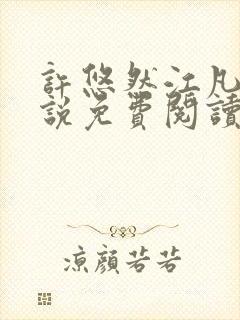 許悠然江凡
說免費閱讀
涼顏若若